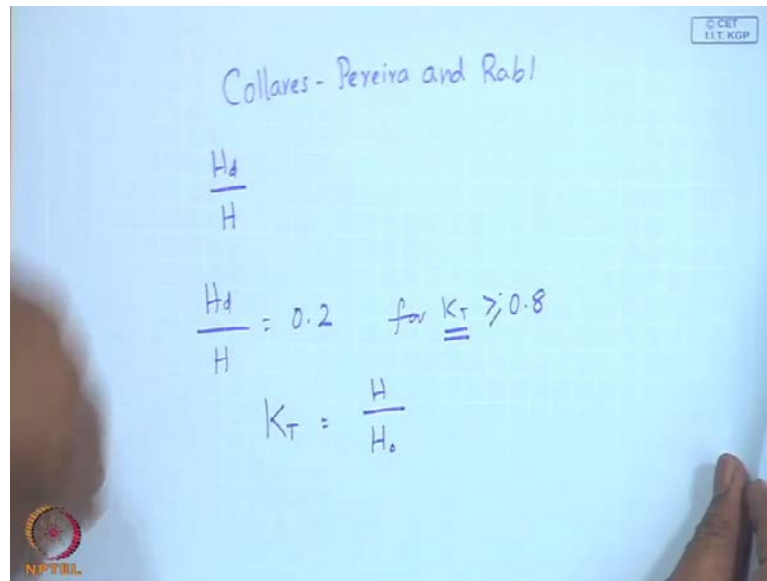 © CET
I.I.T. KGP
Collares - Pereira and Rabl
Hd
H
Hd / H = 0.2 for KT ⩾ 0.8
KT = H / H₀
NPTEL